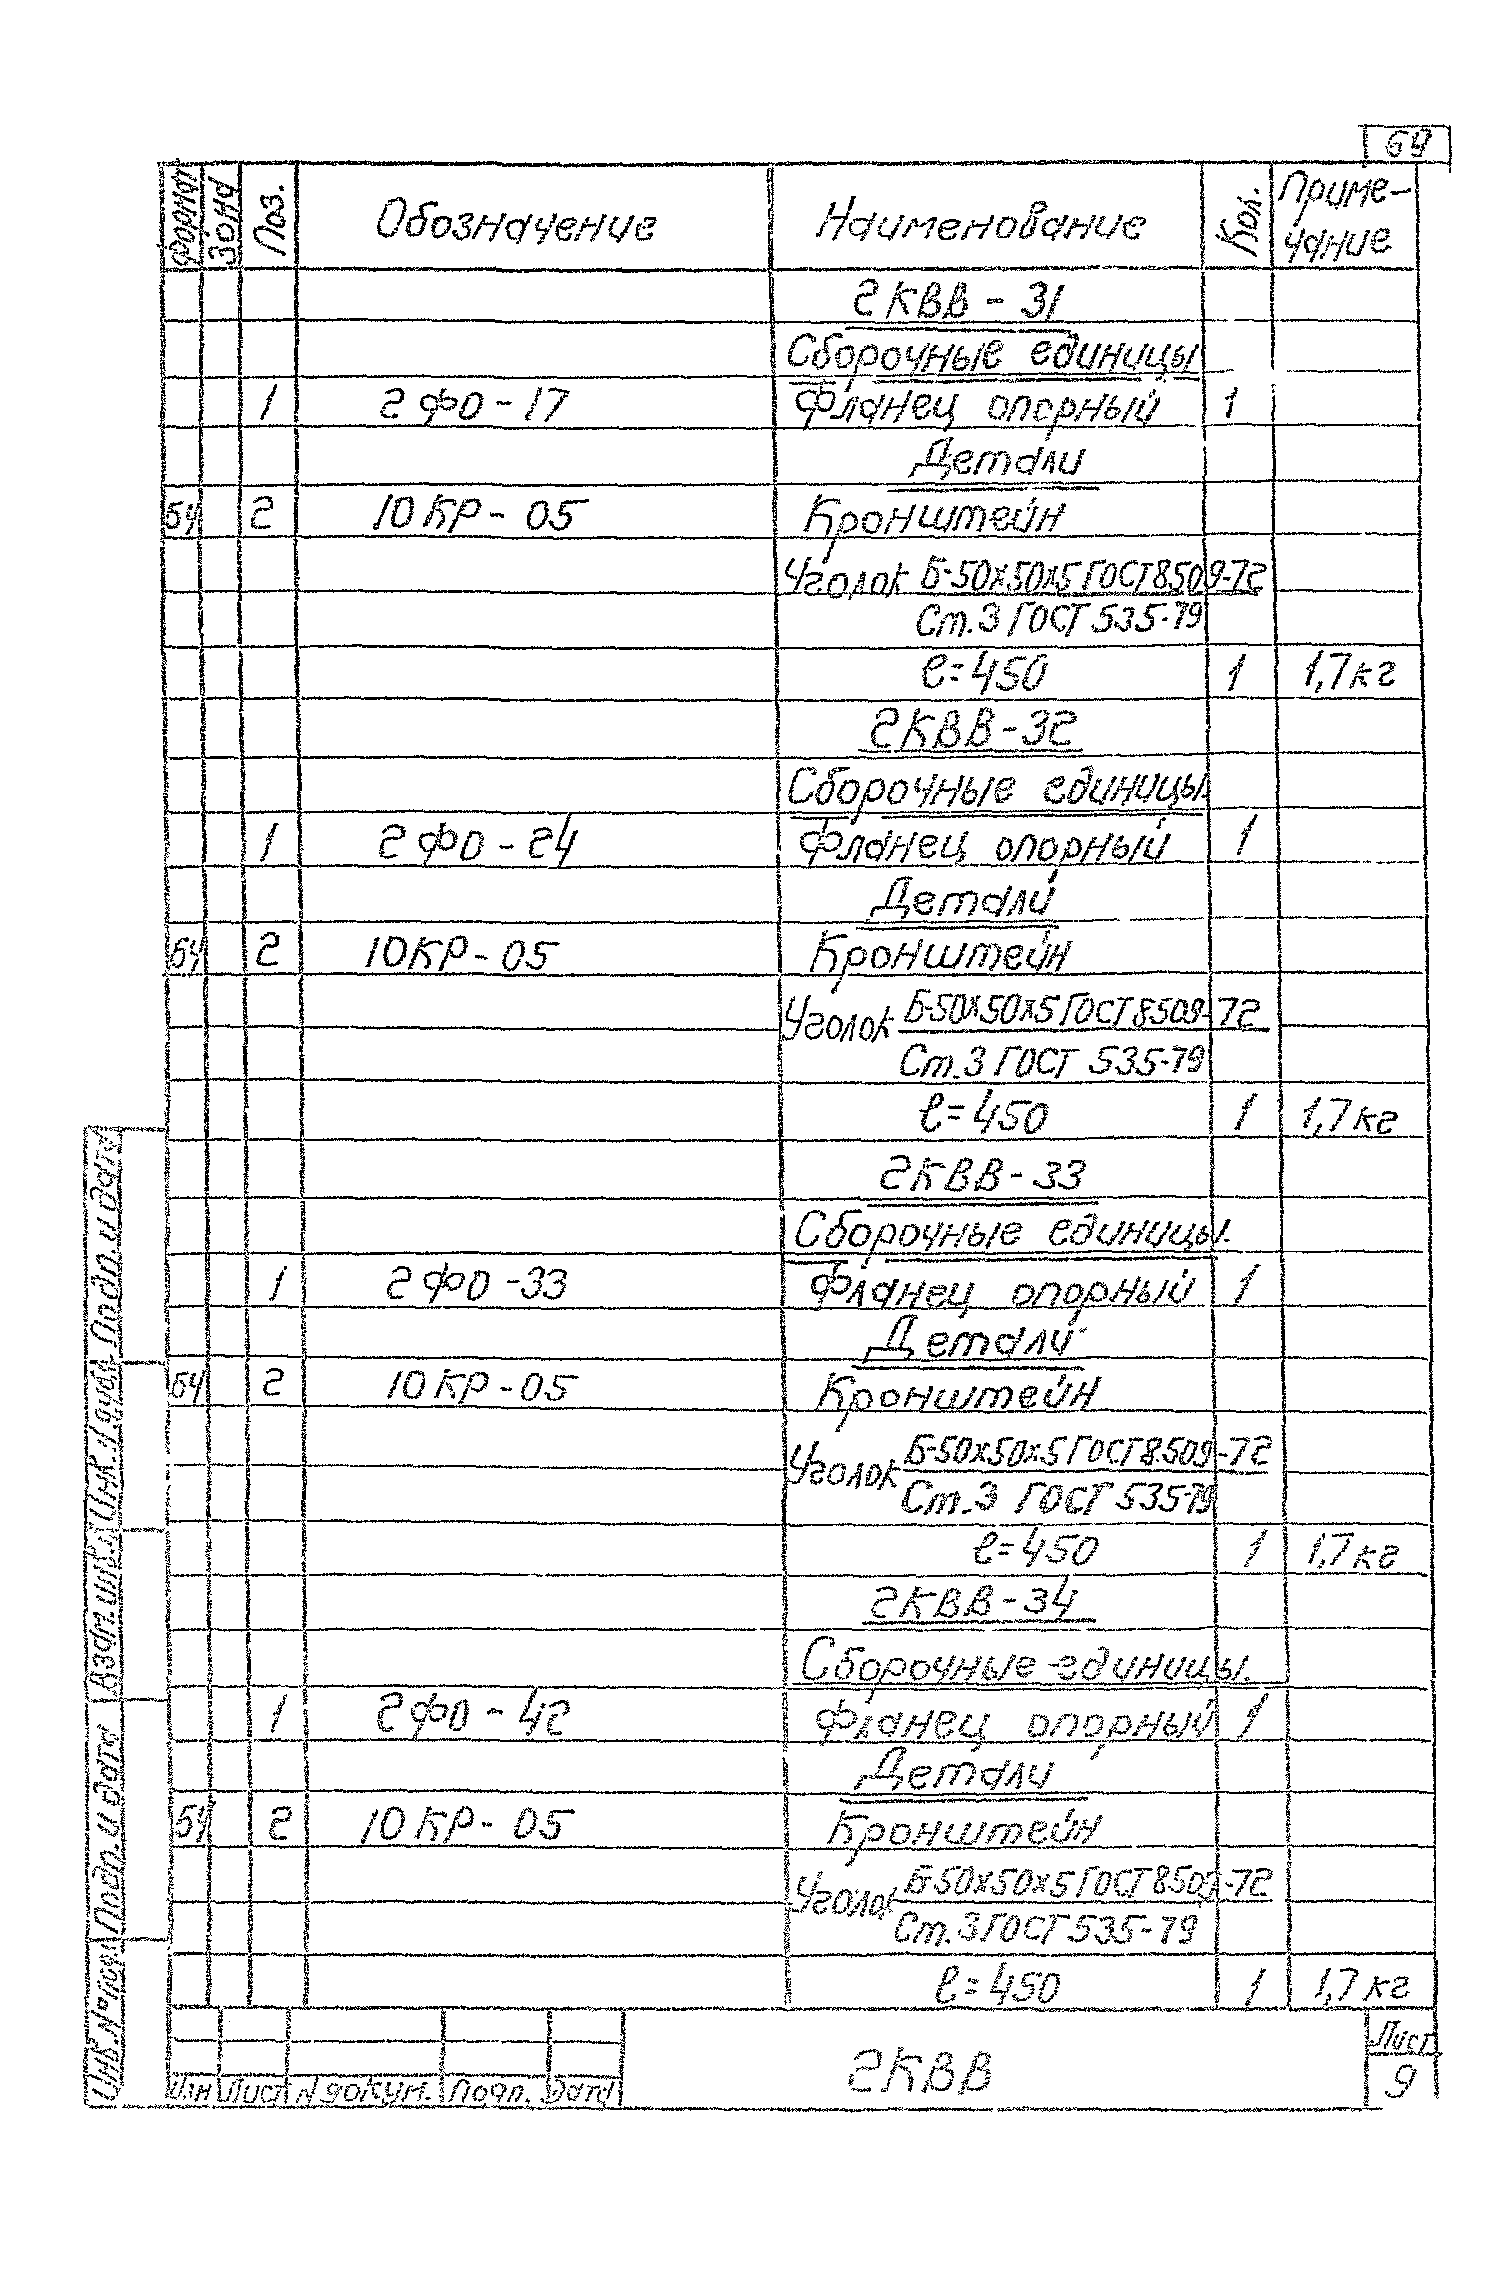 69
Формат Зона Поз. Обозначение Наименование Кол. Приме-чание
2КВВ-31
Сборочные единицы
1 2ФО-17 Фланец опорный 1
Детали
БЧ 2 10КР-05 Кронштейн
Уголок Б-50х50х5 ГОСТ 8509-72
Ст.3 ГОСТ 535-79
l=450 1 1,7кг
2КВВ-32
Сборочные единицы.
1 2ФО-24 Фланец опорный 1
Детали
БЧ 2 10КР-05 Кронштейн
Уголок Б-50х50х5 ГОСТ 8509-72
Ст.3 ГОСТ 535-79
l=450 1 1,7кг
2КВВ-33
Сборочные единицы.
1 2ФО-33 Фланец опорный 1
Детали
БЧ 2 10КР-05 Кронштейн
Уголок Б-50х50х5 ГОСТ 8509-72
Ст.3 ГОСТ 535-79
l=450 1 1,7кг
2КВВ-34
Сборочные единицы.
1 2ФО-42 Фланец опорный 1
Детали
БЧ 2 10КР-05 Кронштейн
Уголок Б-50х50х5 ГОСТ 8509-72
Ст.3 ГОСТ 535-79
l=450 1 1,7кг
Изм Лист N докум. Подп. Дата
2КВВ
Лист
9
Инв.№ подл. Подп. и дата Взам. инв.N Инв.N дубл. Подп. и дата